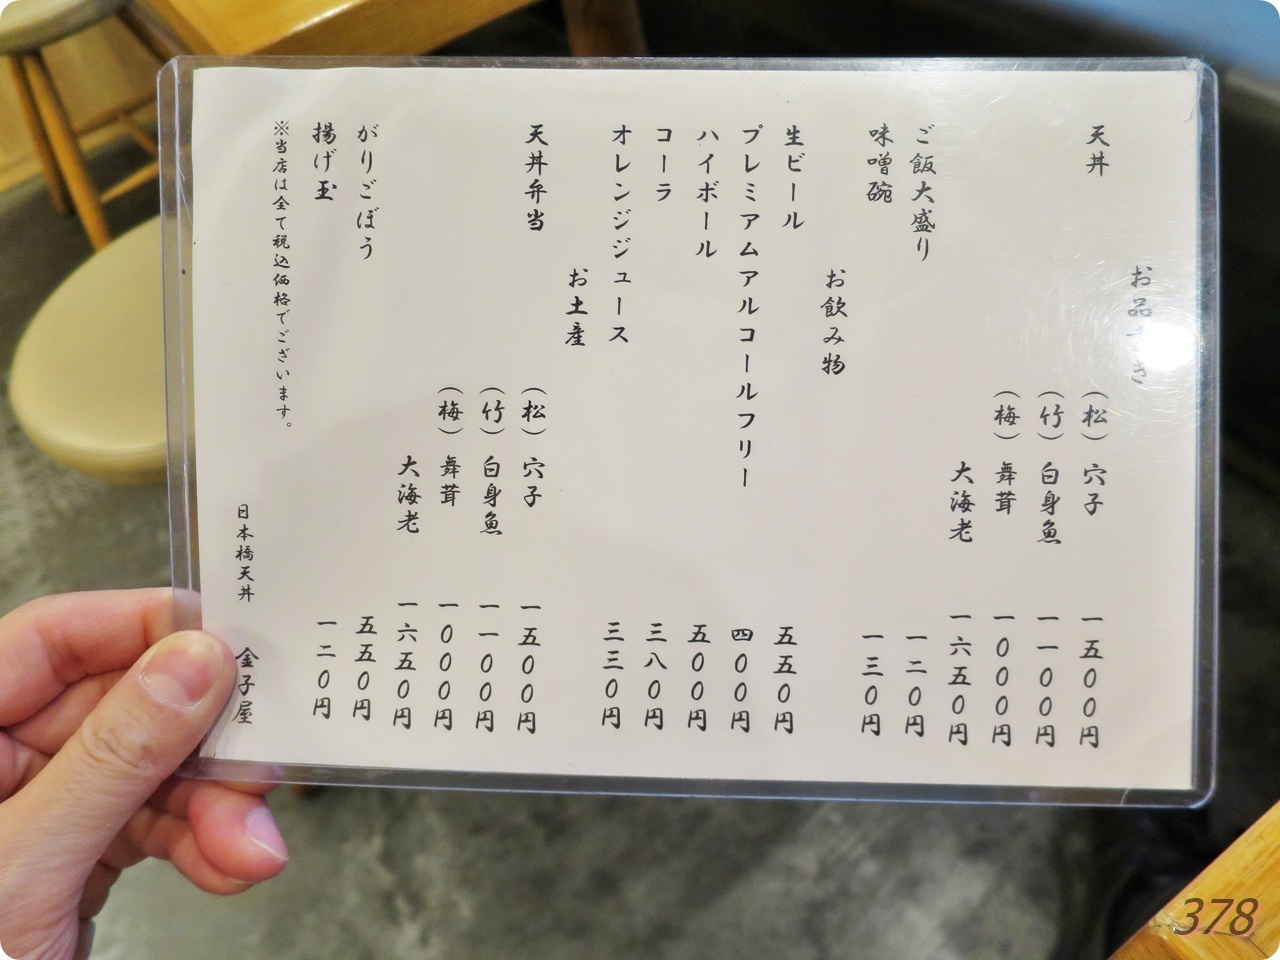 お品き
天丼 （松）穴子 一五００円
（竹）白身魚 一一００円
（梅）舞茸 一０００円
大海老 一六五０円
ご飯大盛り 一二０円
味噌碗 一三０円
お飲み物
生ビール 五五０円
プレミアムアルコールフリー 四００円
ハイボール 五００円
コーラ 三八０円
オレンジジュース 三三０円
お土産
天丼弁当 （松）穴子 一五００円
（竹）白身魚 一一００円
（梅）舞茸 一０００円
大海老 一六五０円
がりごぼう 五五０円
揚げ玉 一二０円
※当店は全て税込価格でございます。
日本橋天丼 金子屋
378